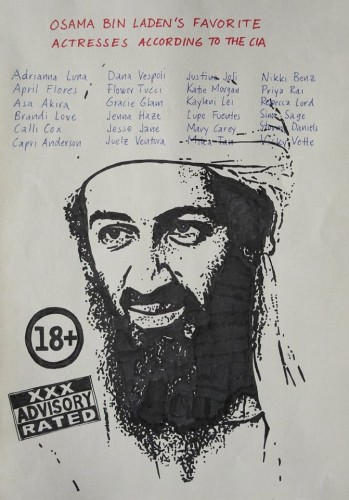 OSAMA BIN LADEN'S FAVORITE
ACTRESSES ACCORDING TO THE CIA
Adrianna Luna Dana Vespoli Justine Joli Nikki Benz
April Flores Flower Tucci Katie Morgan Priya Rai
Asa Akira Gracie Glam Kaylani Lei Rebecca Lord
Brandi Love Jenna Haze Lupe Fuentes Sinn Sage
Calli Cox Jesse Jane Mary Carey Stormy Daniels
Capri Anderson Juelz Ventura Mika Tan Vicky Vette
18+
XXX
ADVISORY
RATED